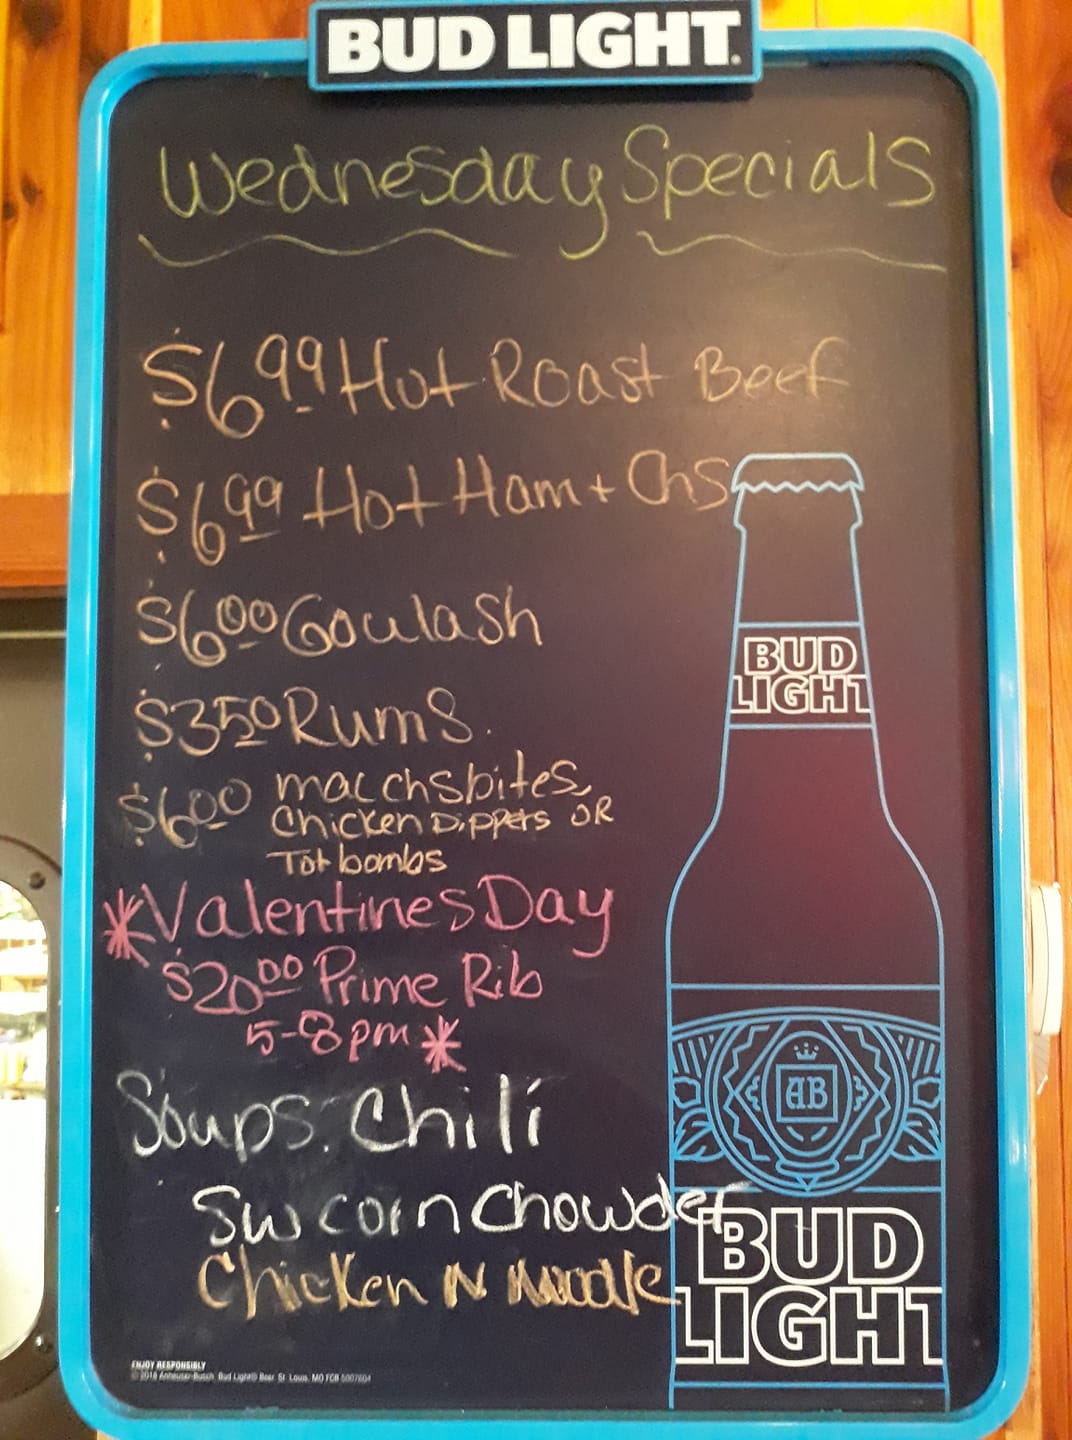 BUD LIGHT.
Wednesday Specials
$6.99 Hot Roast Beef
$6.99 Hot Ham + Chs
$6.00 Goulash
$3.50 Rums.
$6.00 mac chs bites,
Chicken Dippers OR
Tot bombs
*Valentines Day
$20.00 Prime Rib
5-8pm*
Soups: Chili
Sw corn Chowder
Chicken N Noodle
BUD
LIGHT
AB
BUD
LIGHT
ENJOY RESPONSIBLY
© 2018 Anheuser-Busch, Bud Light® Beer, St. Louis, MO